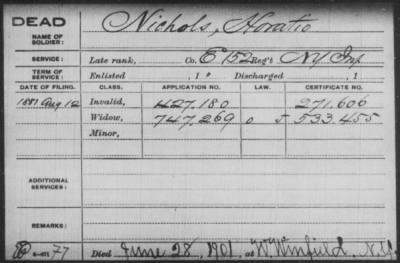 DEAD
NAME OF SOLDIER: Nichols, Horatio
SERVICE: Late rank, Co. E 152 Reg't N.Y. Inf.
TERM OF SERVICE: Enlisted , 1 Discharged , 1
DATE OF FILING. CLASS. APPLICATION NO. LAW. CERTIFICATE NO.
1881 Aug 12 Invalid, 427.180 271.606
Widow, 747.269 533.455
Minor,
ADDITIONAL SERVICES:
REMARKS:
77 Died June 28, 1901, at W. Winfield, N.Y.